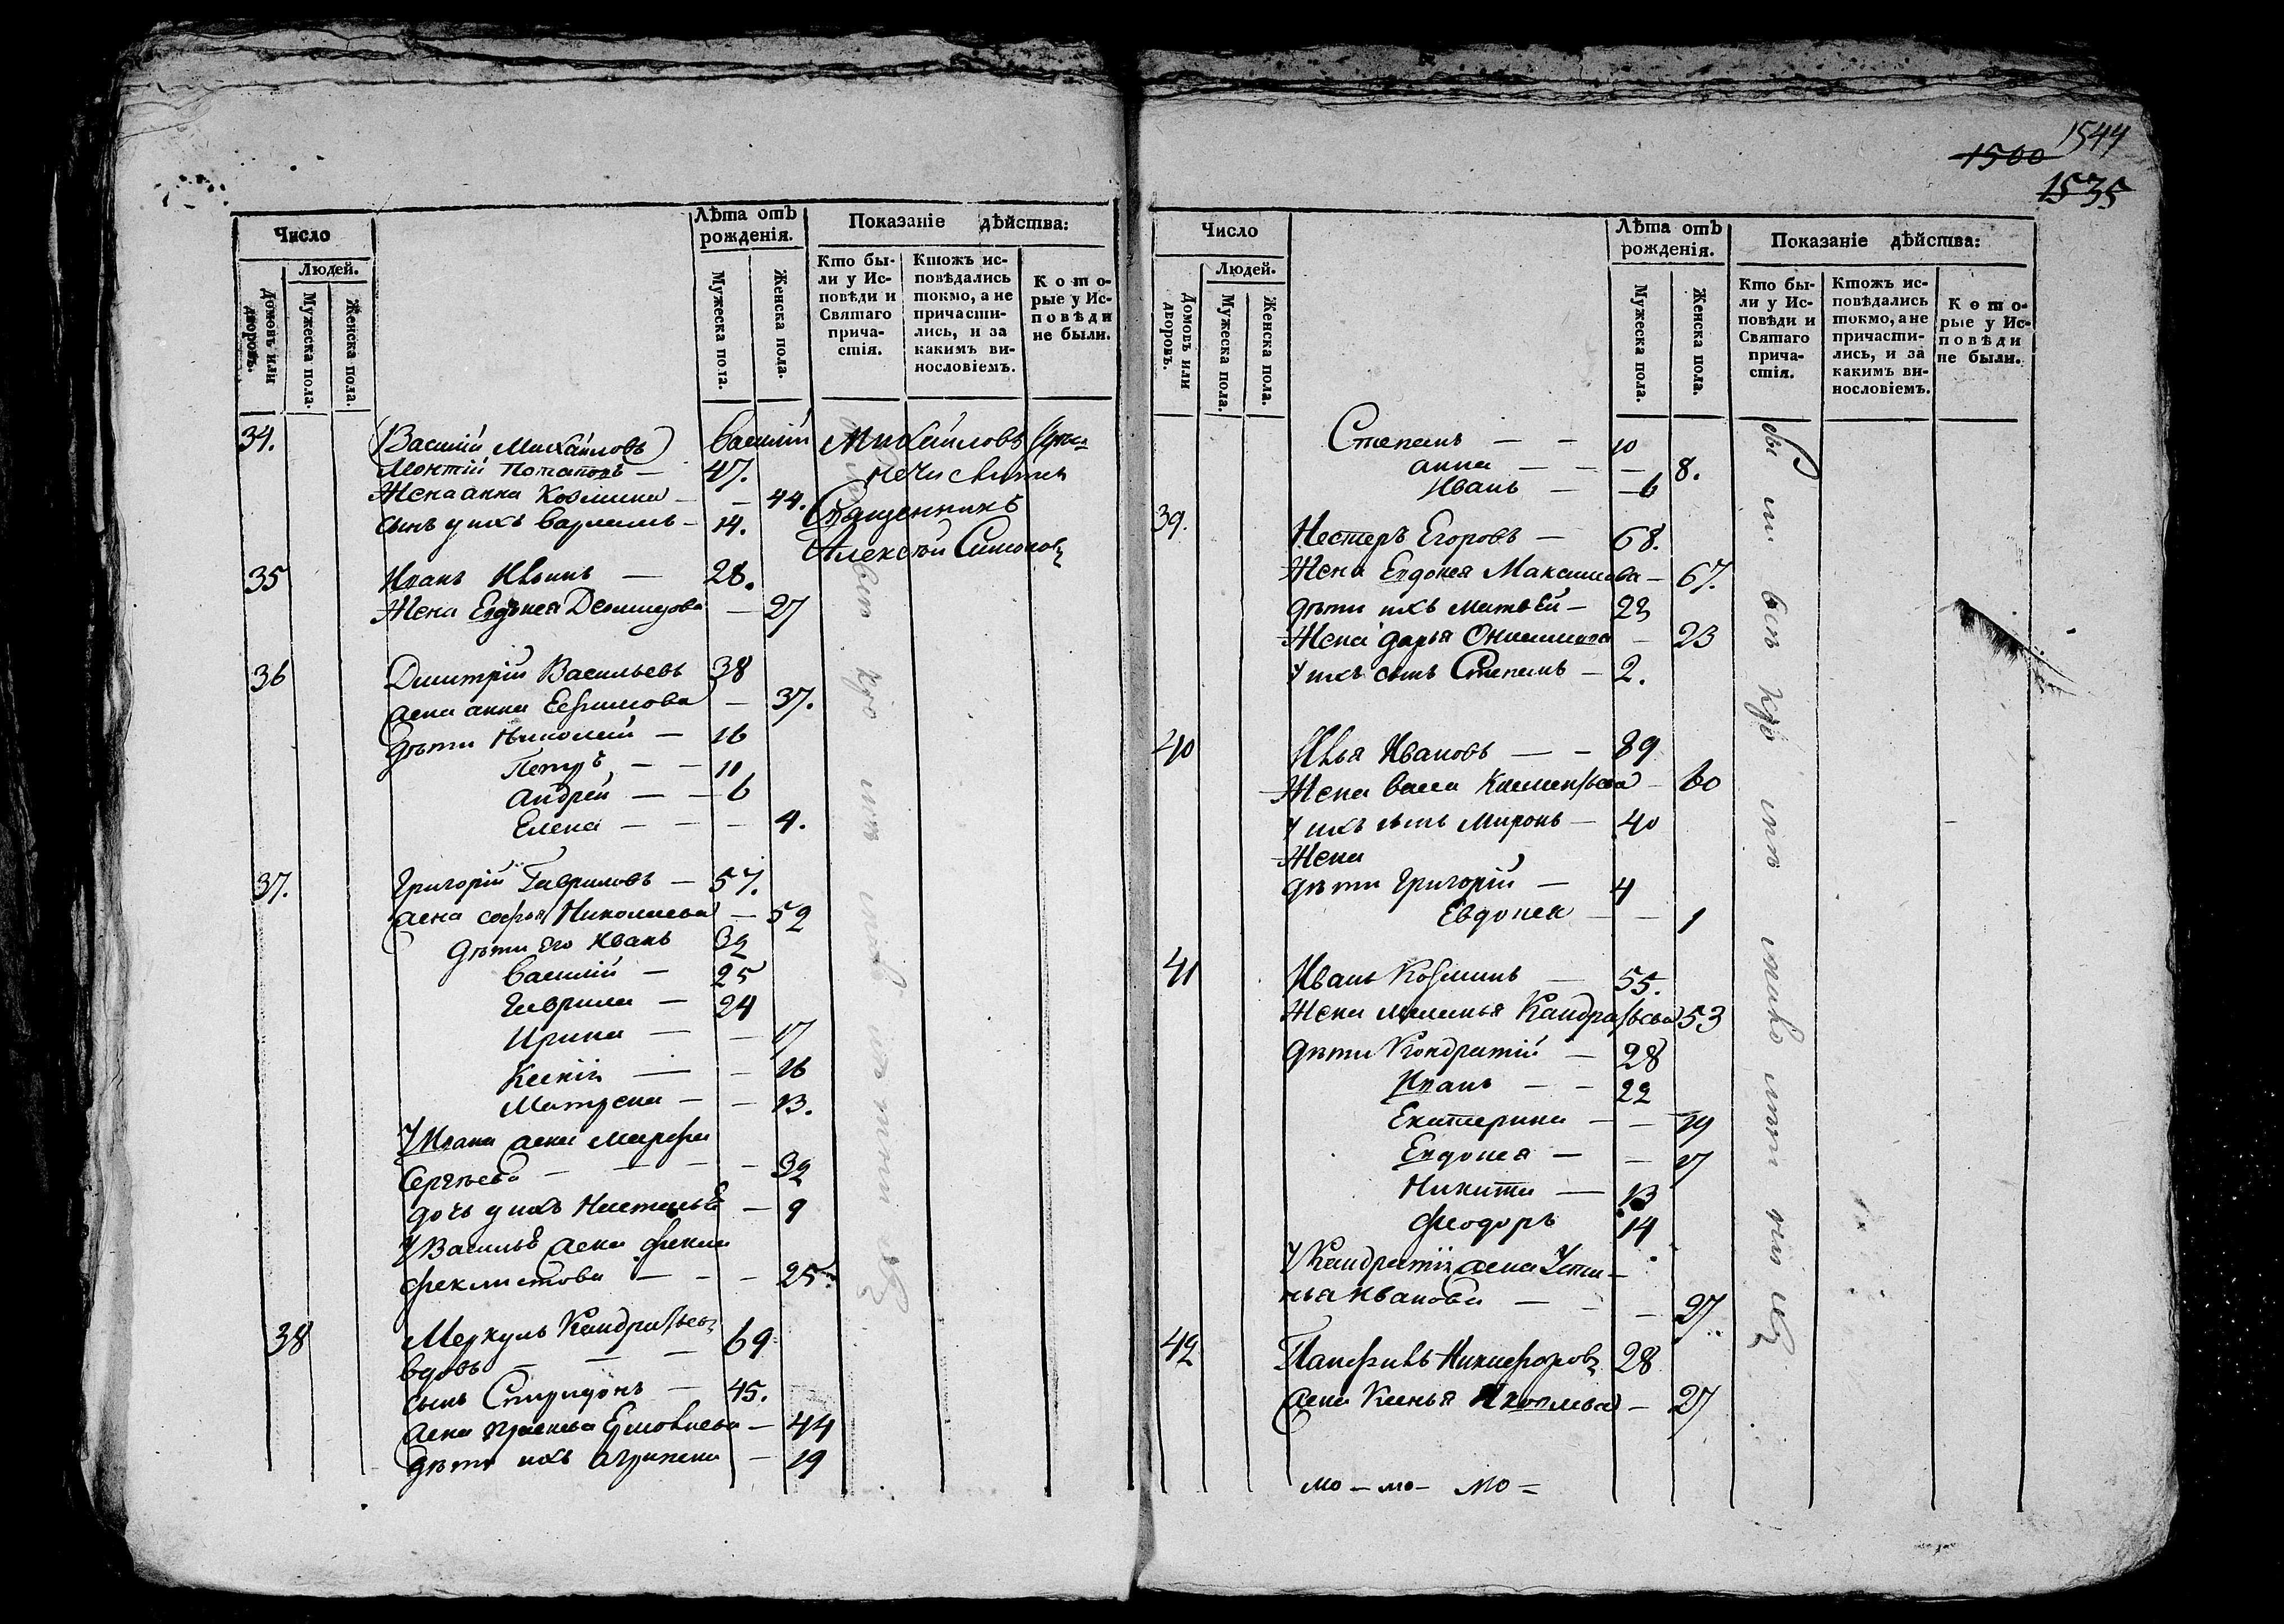 Число
Лѣта отъ рожденія.
Показаніе дѣйства:
Людей.
Домовъ или дворовъ.
Мужеска пола.
Женска пола.
Мужеска пола.
Женска пола.
Кто бы-
ли у Ис-
повѣди и
Святаго
прича-
стія.
Ктожъ ис-
повѣдались
токмо, а не
причасти-
лись, и за
какимъ ви-
нословіемъ.
Кото-
рые у Ис-
повѣди
не были.
34. (Василій Михайловъ) Василій Михайловъ
Леонтій Потаповъ — 47.
Жена анна Козмина — — 44. Священникъ
сынъ у ихъ Варламъ — 14. Алексѣй Симоновъ
35 Иванъ Ильинъ — 28.
Жена Евдокея Демидова — 27
36 Димитрій Васильевъ 38
жена анна Ефимова — 37.
дѣти Николай — 16
Петръ — — 11
Андрей — — 6
Елена — — — 4.
37. Григорій Гавриловъ — 57.
жена софья Николаева — 52
дѣти его Иванъ 32
Василій — 25
Гаврила — 24
Ирина — — 17
Ксенія — — 16
Матрена — — 13.
У Ивана жена Марфа
Сергѣева — — — — 32
дочь у ихъ Настасья — 9
У Василья жена фекла
феклистова — — — 25.
38 Меркулъ Кандратьевъ 69
вдовъ — — —
сынъ Спиридонъ — 45.
жена Ермолаева — 44
дѣти ихъ Агрипена — 19
1544
1500
1535
Число
Лѣта отъ рожденія.
Показаніе дѣйства:
Людей.
Домовъ или дворовъ.
Мужеска пола.
Женска пола.
Мужеска пола.
Женска пола.
Кто бы-
ли у Ис-
повѣди и
Святаго
прича-
стія.
Ктожъ ис-
повѣдались
токмо, а не
причасти-
лись, и за
какимъ ви-
нословіемъ.
Кото-
рые у Ис-
повѣди
не были.
Степанъ — — 10
анна — — — 8.
Иванъ — — 6
39. Нестеръ Егоровъ — 68.
Жена Евдокея Максимова — 67.
дѣти ихъ Матвѣй — 23
Жена дарья Онисимова — 23
У ихъ сынъ Степанъ — 2.
40 Илья Ивановъ — — 89
Жена васса Климентьева — 60
У ихъ сынъ Миронъ — 40
Жена
дѣти Григорій — 4
Евдокея — — 1
41 Иванъ Козминъ — 55.
Жена меланья Кандратьева 53
дѣти Кондратій — 28
Иванъ — — 22
Екатерина — — 19
Евдокея — — 17
Никита — 13
Феодоръ 14
У Кандратія жена Усти-
нья Иванова — — — 27.
42 Панфилъ Никифоровъ 28
жена Ксенья — 27